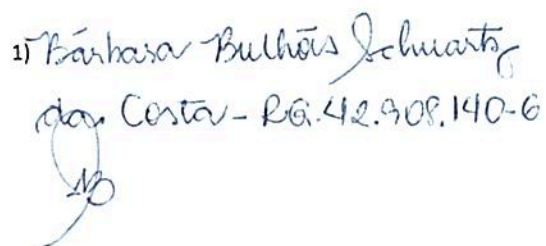 1) Bárbara Bulhões Schwartz
da Costa - RG.42.908.140-6